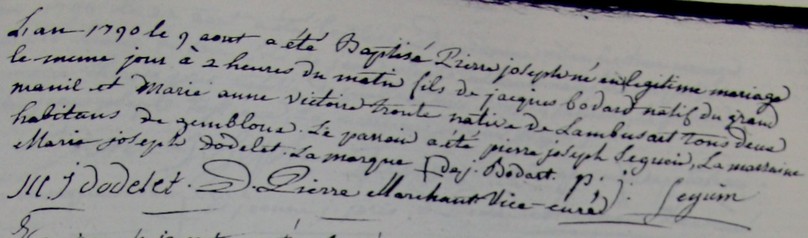 L'an 1790 le 9 aout a été Baptisé Pierre joseph né en legitime mariage
le meme jour à 2 heures du matin fils de jacques bodart natif du grand
manil et Marie anne victoire native de Lambusart Tous deux
habitans de gembloux. Le parrain a été pierre joseph Seguin, La marraine
Marie joseph dodelet. La marque de j. Bodart. p. j. Seguin
M j dodelet. D. Pierre Marchant Vice-curé